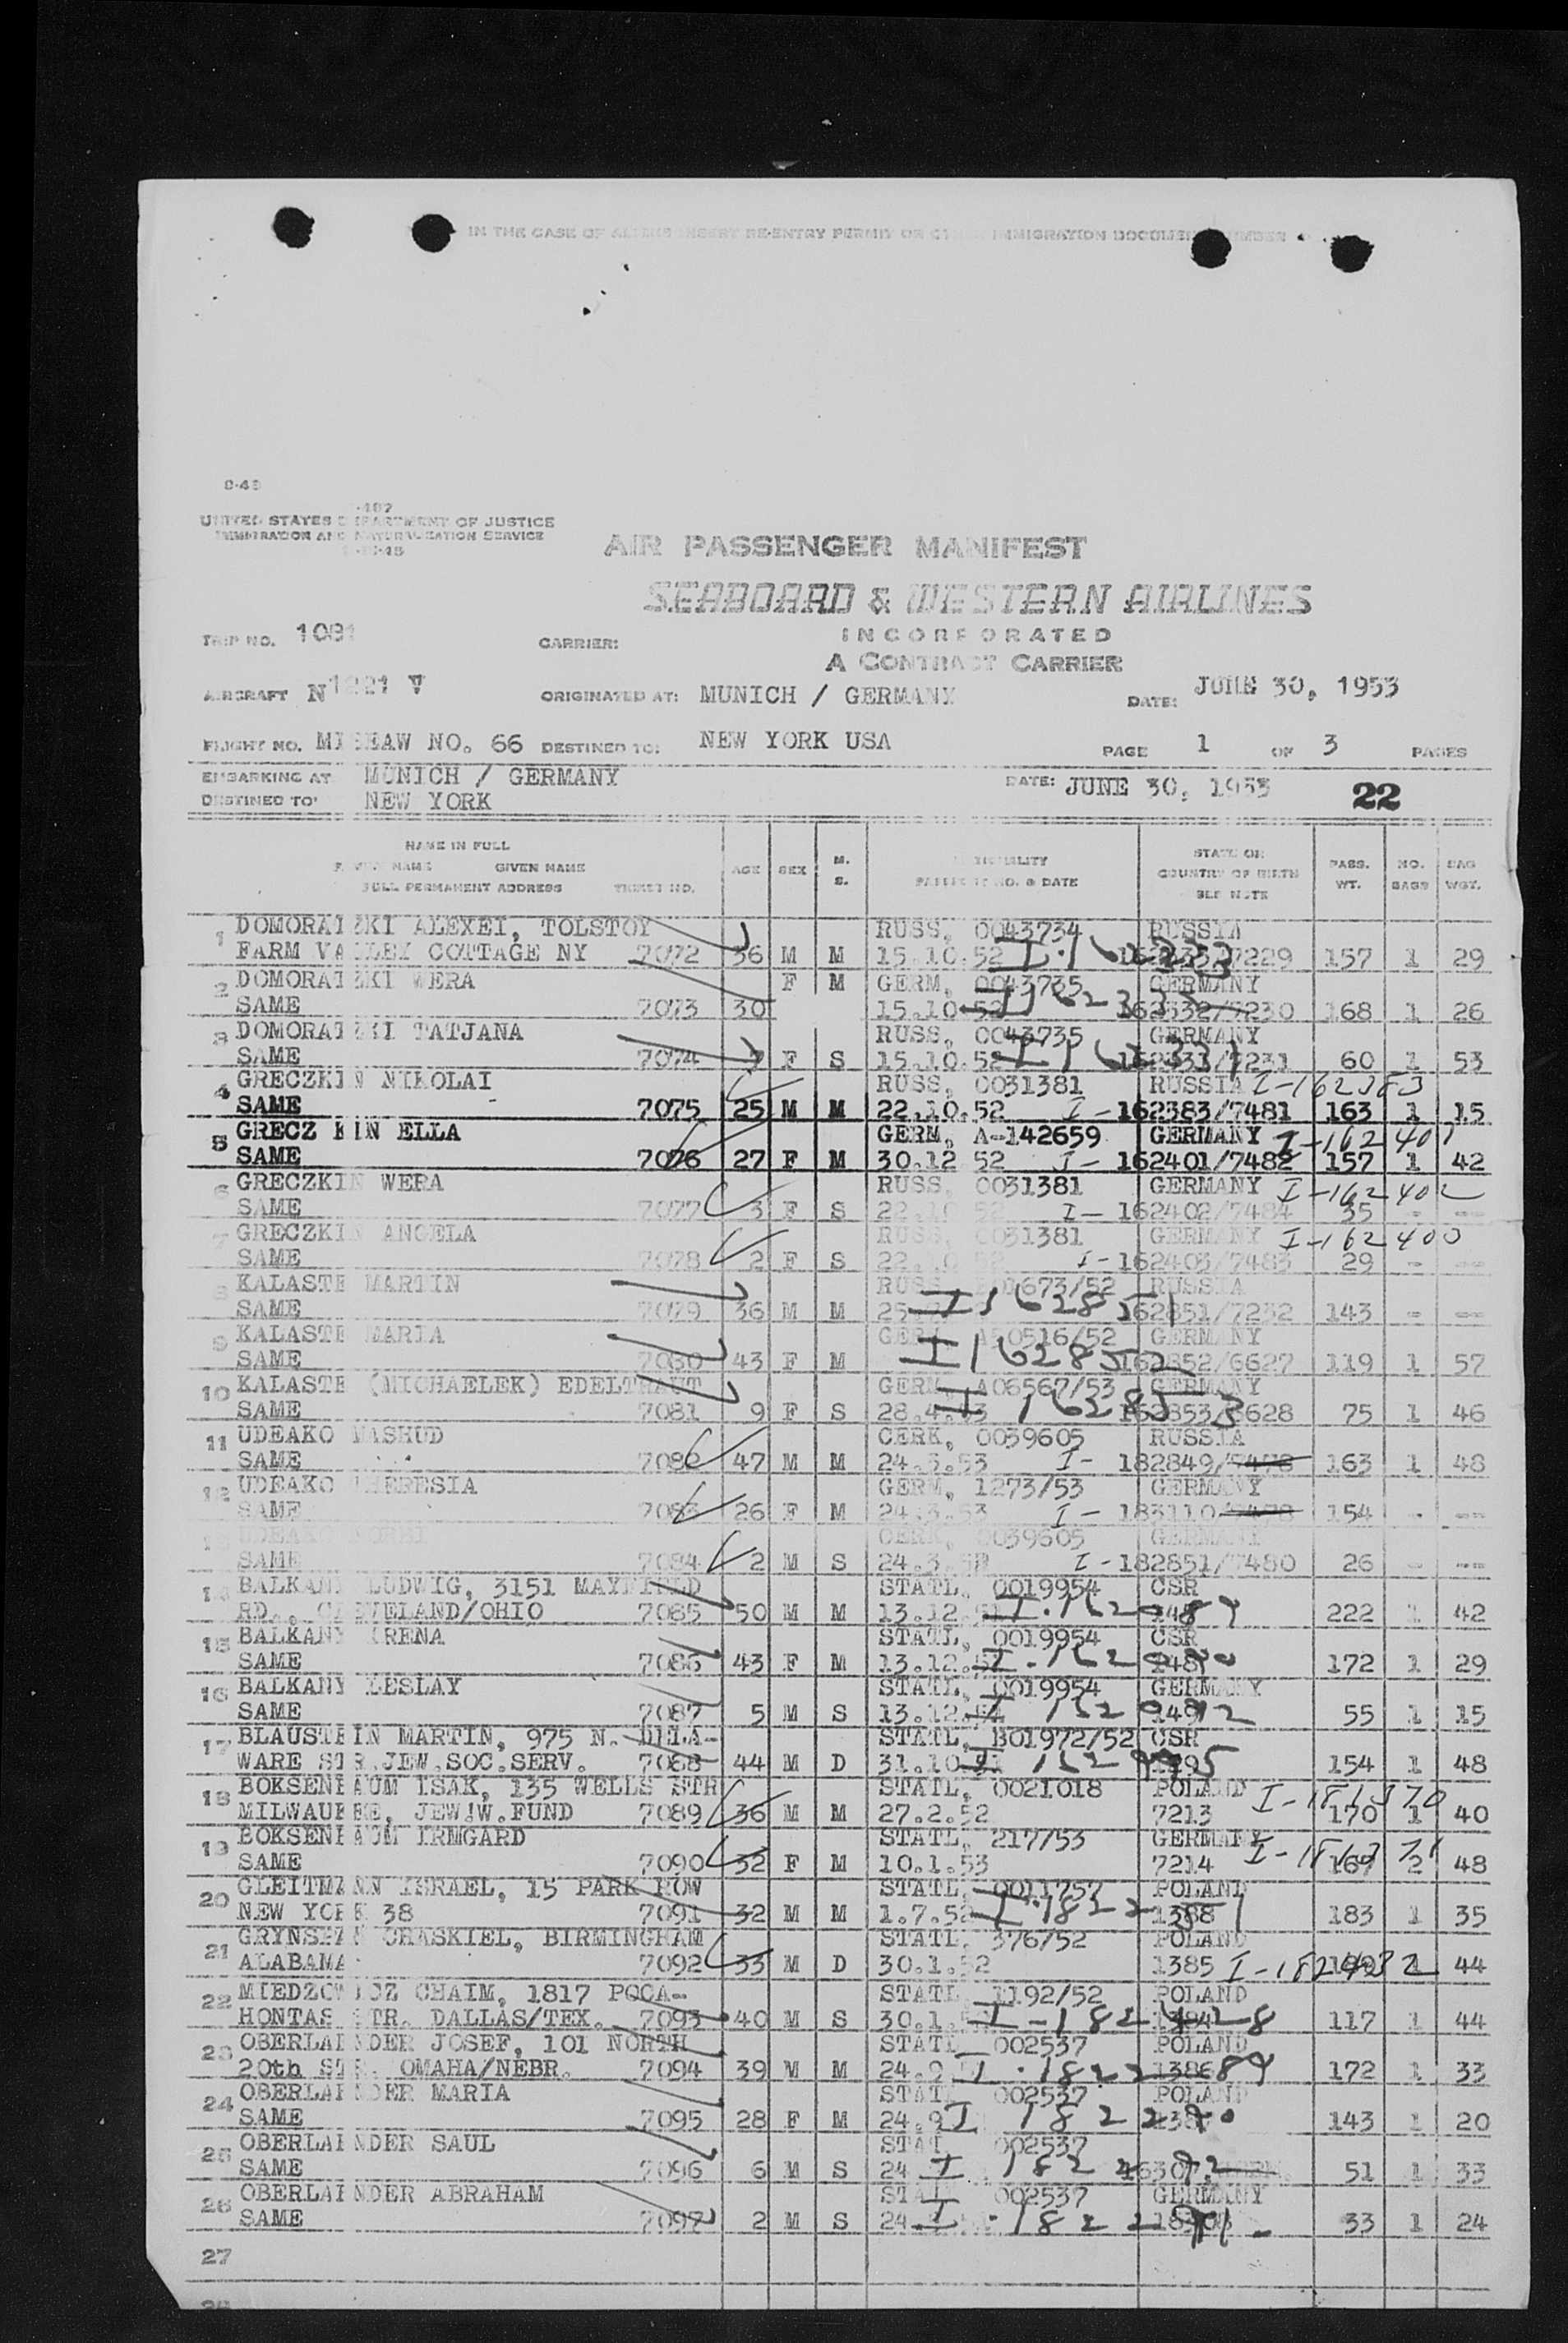 IN THE CASE OF ALIENS INSERT RE-ENTRY PERMIT OR OTHER IMMIGRATION DOCUMENT NUMBER
UNITED STATES DEPARTMENT OF JUSTICE
IMMIGRATION AND NATURALIZATION SERVICE
AIR PASSENGER MANIFEST
SEABOARD & WESTERN AIRLINES
INCORPORATED
A CONTRACT CARRIER
TRIP NO. 1081 CARRIER:
AIRCRAFT N1221 V ORIGINATED AT: MUNICH / GERMANY DATE: JUNE 30, 1953
FLIGHT NO. NO. 66 DESTINED TO: NEW YORK USA PAGE 1 OF 3 PAGES
EMBARKING AT MUNICH / GERMANY DATE: JUNE 30, 1953
DESTINED TO NEW YORK 22
NAME IN FULL
FAMILY NAME GIVEN NAME
FULL PERMANENT ADDRESS TICKET NO. AGE SEX M. S. NATIONALITY PASSPORT NO. & DATE STATE OR COUNTRY OF BIRTH SEE NOTE PASS. WT. NO. BAGS BAG WGT.
1 DOMORATZKI ALEXEI, TOLSTOY RUSS, 0043734 RUSSIA
FARM VALLEY COTTAGE NY 7072 36 M M 15.10.52 /7229 157 1 29
2 DOMORATZKI WERA F M GERM, 0043735 GERMANY
SAME 7073 30 15.10.52 162332/7230 168 1 26
3 DOMORATZKI TATJANA RUSS, 0043735 GERMANY
SAME 7074 F S 15.10.52 162331/7231 60 1 53
4 GRECZKIN NIKOLAI RUSS, 0031381 RUSSIA I-162383
SAME 7075 25 M M 22.10.52 I-162383/7481 163 1 15
5 GRECZKIN ELLA GERM, A-142659 GERMANY I-162401
SAME 7076 27 F M 30.12 52 I-162401/7482 157 1 42
6 GRECZKIN WERA RUSS, 0031381 GERMANY I-162402
SAME 7077 3 F S 22.10 52 I-162402/7484 35 - --
7 GRECZKIN ANGELA RUSS, 0031381 GERMANY I-162400
SAME 7078 2 F S I-162403/7483 29 - --
8 KALASTE MARTIN RUSS /52 RUSSIA
SAME 7079 36 M M I 162851 162851/7232 143 - --
9 KALASTE MARIA GERM /52 GERMANY
SAME 7080 43 F M I 162852 162852/6627 119 1 57
10 KALASTE (MICHAELEK) EDELTRAUT GERM, A06567/53 GERMANY
SAME 7081 9 F S 28.4.53 I 162853 162853/6628 75 1 46
11 UDEAKO MASHUD CERK, 0039605 RUSSIA
SAME 7082 47 M M 24.3.53 I-182849/7478 163 1 48
12 UDEAKO THERESIA GERM, 1273/53 GERMANY
SAME 7083 26 F M 24.3.53 I-183110 154 - --
UDEAKO CERK, 0039605 GERMANY
SAME 7084 2 M S 24.3.53 I-182851/7480 26 - ---
14 BALKANY LUDWIG, 3151 MAYFIELD STATL, 0019954 CSR
RD., CLEVELAND/OHIO 7085 50 M M 13.12. 222 1 42
15 BALKANY IRENA STATL, 0019954 CSR
SAME 7086 43 F M 13.12. 172 1 29
16 BALKANY LESLAY STATL, 0019954 GERMANY
SAME 7087 5 M S 13.12. 55 1 15
17 BLAUSTEIN MARTIN, 975 N. DELA- STATL, B01972/52 CSR
WARE STR.JEW.SOC.SERV. 7088 44 M D 31.10 154 1 48
18 BOKSENBAUM ISAK, 135 WELLS STR STATL, 0021018 POLAND I-181370
MILWAUKEE, JEW.W.FUND 7089 36 M M 27.2.52 7213 170 1 40
19 BOKSENBAUM IRMGARD STATL, 217/53 GERMANY I-181371
SAME 7090 32 F M 10.1.53 7214 167 2 48
20 GLEITMANN ISRAEL, 15 PARK ROW STATL, 0011757 POLAND
NEW YORK 38 7091 32 M M 1.7.52 1388 183 1 35
21 CHASKIEL, BIRMINGHAM STATL, 376/52 POLAND
ALABAMA 7092 33 M D 30.1.52 1385 1 44
22 MIEDZOWICZ CHAIM, 1817 POCA- STATL, 1192/52 POLAND
HONTAS STR. DALLAS/TEX. 7093 40 M S 30.1. I-182428 117 1 44
23 OBERLAENDER JOSEF, 101 NORTH STATL 002537 POLAND
20th STR. OMAHA/NEBR. 7094 39 M M 24.9 I-182289 172 1 33
24 OBERLAENDER MARIA STATL 002537 POLAND
SAME 7095 28 F M 24.9 I 182290 143 1 20
25 OBERLAENDER SAUL STATL 002537
SAME 7096 6 M S 24 51 1 33
26 OBERLAENDER ABRAHAM STATL 002537 GERMANY
SAME 7097 2 M S 24 I-182291 33 1 24
27